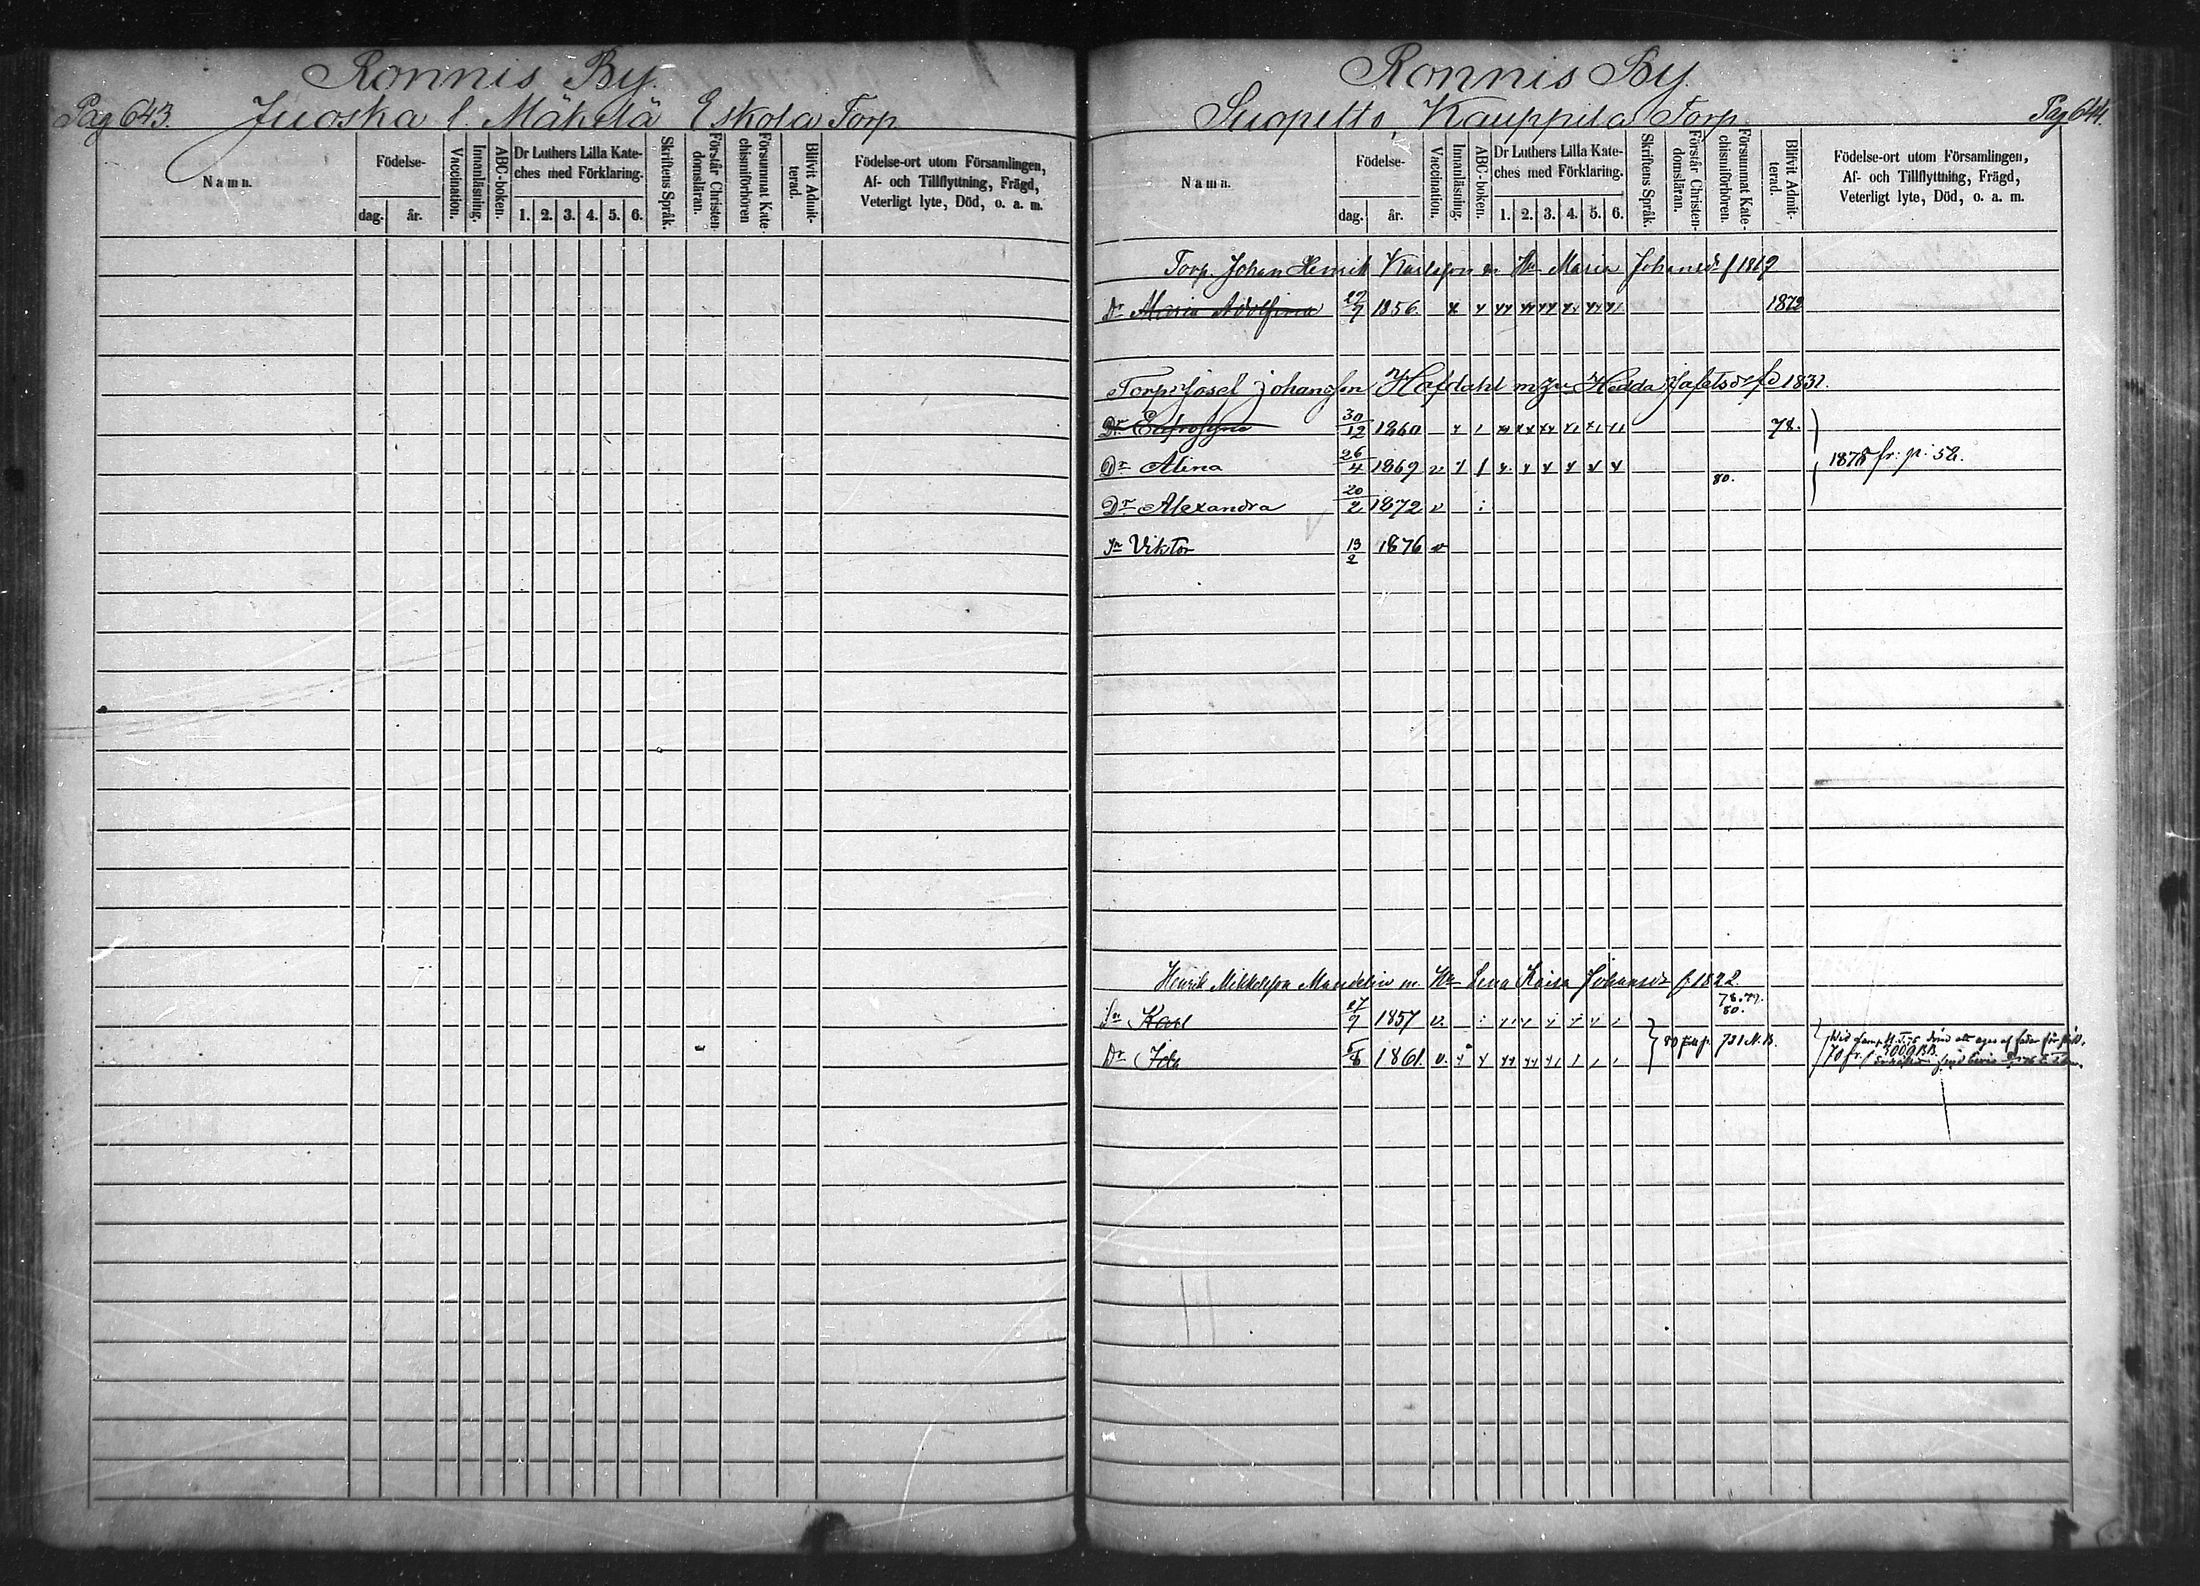 Ronnis By.
Pag 643. Juoska l. Mäkelä Eskola Torp
Namn.
Födelse-
dag. år.
Vaccination.
Innanläsning.
ABC-boken.
Dr Luthers Lilla Kate-
ches med Förklaring.
1. 2. 3. 4. 5. 6.
Skriftens Språk.
Förstår Christen-
domsläran.
Försummat Kate-
chismiförhören
Blifvit Admit-
terad.
Födelse-ort utom Församlingen,
Af- och Tillflyttning, Frägd,
Veterligt lyte, Död, o. a. m.
Ronnis By.
Suopelto, Kauppila Torp Pag 644.
Namn.
Födelse-
dag. år.
Vaccination.
Innanläsning.
ABC-boken.
Dr Luthers Lilla Kate-
ches med Förklaring.
1. 2. 3. 4. 5. 6.
Skriftens Språk.
Förstår Christen-
domsläran.
Försummat Kate-
chismiförhören.
Blifvit Admit-
terad.
Födelse-ort utom Församlingen,
Af- och Tillflyttning, Frägd,
Veterligt lyte, Död, o. a. m.
Torp. Johan Henrik Karlsson m Hu Maria Johansdr f 1819
Dr Maria Adolfina 27/9 1856 x x xx xx xx xx xx xx 1872
Torp. Josef Johansson Hafdahl m Hu Hedda fd 1831.
Dr 30/12 1860 78.
Dr Alina 26/4 1869 v x x x x x x 80. 1878 fr. p. 52.
Dr Alexandra 20/2 1872 v
Sn Viktor 13/2 1876 v
Henrik Mikkelsson Mandelin m. Hu Lena Kaisa Johansdr f. 1822.
Sn Karl 27/9 1857 v. 78.79. 80.
Dr Ida 6/8 1861. v. 80 721 N.B.